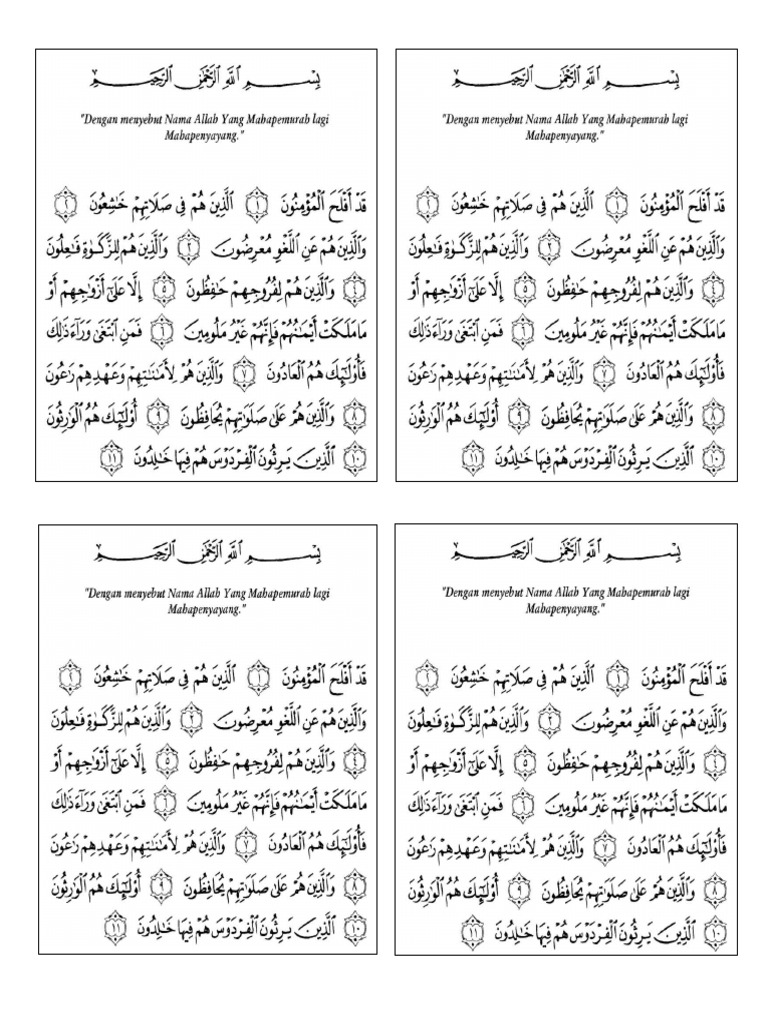 بِسْمِ اللَّهِ الرَّحْمَٰنِ الرَّحِيمِ
"Dengan menyebut Nama Allah Yang Mahapemurah lagi
Mahapenyayang."
قَدْ أَفْلَحَ الْمُؤْمِنُونَ ١ الَّذِينَ هُمْ فِي صَلَاتِهِمْ خَٰشِعُونَ ٢
وَالَّذِينَ هُمْ عَنِ اللَّغْوِ مُعْرِضُونَ ٣ وَالَّذِينَ هُمْ لِلزَّكَوٰةِ فَٰعِلُونَ
٤ وَالَّذِينَ هُمْ لِفُرُوجِهِمْ حَٰفِظُونَ ٥ إِلَّا عَلَىٰٓ أَزْوَٰجِهِمْ أَوْ
مَا مَلَكَتْ أَيْمَٰنُهُمْ فَإِنَّهُمْ غَيْرُ مَلُومِينَ ٦ فَمَنِ ابْتَغَىٰ وَرَآءَ ذَٰلِكَ
فَأُولَٰٓئِكَ هُمُ الْعَادُونَ ٧ وَالَّذِينَ هُمْ لِأَمَٰنَٰتِهِمْ وَعَهْدِهِمْ رَٰعُونَ
٨ وَالَّذِينَ هُمْ عَلَىٰ صَلَوَٰتِهِمْ يُحَافِظُونَ ٩ أُولَٰٓئِكَ هُمُ الْوَٰرِثُونَ
١٠ الَّذِينَ يَرِثُونَ الْفِرْدَوْسَ هُمْ فِيهَا خَٰلِدُونَ ١١
بِسْمِ اللَّهِ الرَّحْمَٰنِ الرَّحِيمِ
"Dengan menyebut Nama Allah Yang Mahapemurah lagi
Mahapenyayang."
قَدْ أَفْلَحَ الْمُؤْمِنُونَ ١ الَّذِينَ هُمْ فِي صَلَاتِهِمْ خَٰشِعُونَ ٢
وَالَّذِينَ هُمْ عَنِ اللَّغْوِ مُعْرِضُونَ ٣ وَالَّذِينَ هُمْ لِلزَّكَوٰةِ فَٰعِلُونَ
٤ وَالَّذِينَ هُمْ لِفُرُوجِهِمْ حَٰفِظُونَ ٥ إِلَّا عَلَىٰٓ أَزْوَٰجِهِمْ أَوْ
مَا مَلَكَتْ أَيْمَٰنُهُمْ فَإِنَّهُمْ غَيْرُ مَلُومِينَ ٦ فَمَنِ ابْتَغَىٰ وَرَآءَ ذَٰلِكَ
فَأُولَٰٓئِكَ هُمُ الْعَادُونَ ٧ وَالَّذِينَ هُمْ لِأَمَٰنَٰتِهِمْ وَعَهْدِهِمْ رَٰعُونَ
٨ وَالَّذِينَ هُمْ عَلَىٰ صَلَوَٰتِهِمْ يُحَافِظُونَ ٩ أُولَٰٓئِكَ هُمُ الْوَٰرِثُونَ
١٠ الَّذِينَ يَرِثُونَ الْفِرْدَوْسَ هُمْ فِيهَا خَٰلِدُونَ ١١
بِسْمِ اللَّهِ الرَّحْمَٰنِ الرَّحِيمِ
"Dengan menyebut Nama Allah Yang Mahapemurah lagi
Mahapenyayang."
قَدْ أَفْلَحَ الْمُؤْمِنُونَ ١ الَّذِينَ هُمْ فِي صَلَاتِهِمْ خَٰشِعُونَ ٢
وَالَّذِينَ هُمْ عَنِ اللَّغْوِ مُعْرِضُونَ ٣ وَالَّذِينَ هُمْ لِلزَّكَوٰةِ فَٰعِلُونَ
٤ وَالَّذِينَ هُمْ لِفُرُوجِهِمْ حَٰفِظُونَ ٥ إِلَّا عَلَىٰٓ أَزْوَٰجِهِمْ أَوْ
مَا مَلَكَتْ أَيْمَٰنُهُمْ فَإِنَّهُمْ غَيْرُ مَلُومِينَ ٦ فَمَنِ ابْتَغَىٰ وَرَآءَ ذَٰلِكَ
فَأُولَٰٓئِكَ هُمُ الْعَادُونَ ٧ وَالَّذِينَ هُمْ لِأَمَٰنَٰتِهِمْ وَعَهْدِهِمْ رَٰعُونَ
٨ وَالَّذِينَ هُمْ عَلَىٰ صَلَوَٰتِهِمْ يُحَافِظُونَ ٩ أُولَٰٓئِكَ هُمُ الْوَٰرِثُونَ
١٠ الَّذِينَ يَرِثُونَ الْفِرْدَوْسَ هُمْ فِيهَا خَٰلِدُونَ ١١
بِسْمِ اللَّهِ الرَّحْمَٰنِ الرَّحِيمِ
"Dengan menyebut Nama Allah Yang Mahapemurah lagi
Mahapenyayang."
قَدْ أَفْلَحَ الْمُؤْمِنُونَ ١ الَّذِينَ هُمْ فِي صَلَاتِهِمْ خَٰشِعُونَ ٢
وَالَّذِينَ هُمْ عَنِ اللَّغْوِ مُعْرِضُونَ ٣ وَالَّذِينَ هُمْ لِلزَّكَوٰةِ فَٰعِلُونَ
٤ وَالَّذِينَ هُمْ لِفُرُوجِهِمْ حَٰفِظُونَ ٥ إِلَّا عَلَىٰٓ أَزْوَٰجِهِمْ أَوْ
مَا مَلَكَتْ أَيْمَٰنُهُمْ فَإِنَّهُمْ غَيْرُ مَلُومِينَ ٦ فَمَنِ ابْتَغَىٰ وَرَآءَ ذَٰلِكَ
فَأُولَٰٓئِكَ هُمُ الْعَادُونَ ٧ وَالَّذِينَ هُمْ لِأَمَٰنَٰتِهِمْ وَعَهْدِهِمْ رَٰعُونَ
٨ وَالَّذِينَ هُمْ عَلَىٰ صَلَوَٰتِهِمْ يُحَافِظُونَ ٩ أُولَٰٓئِكَ هُمُ الْوَٰرِثُونَ
١٠ الَّذِينَ يَرِثُونَ الْفِرْدَوْسَ هُمْ فِيهَا خَٰلِدُونَ ١١